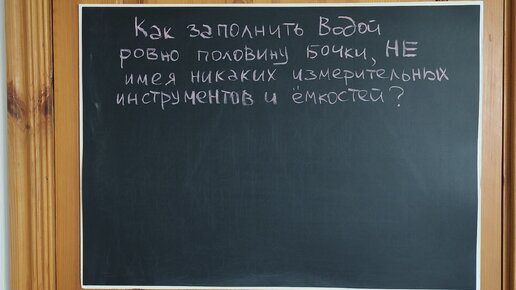 Как заполнить Водой
ровно половину бочки, НЕ
имея никаких измерительных
инструментов и ёмкостей?